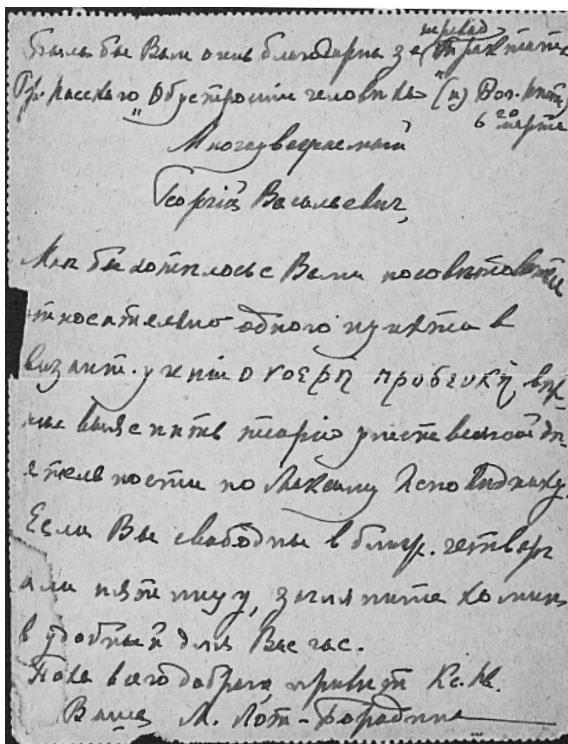 перевод
Была бы Вам очень благодарна за трактата
Гр. Нисского „Об устроеніи человѣка"
марта
Многоуважаемый
Георгій Васильевич,
Мнѣ бы хотѣлось с Вами посовѣтоваться
относительно одного пункта в
визант. ученіи о νοερὴ προσευκὴ
выяснить теорію умственной дѣ-
ятельности по Максиму Исповѣднику.
Если Вы свободны в ближ. четверг
или пятницу, загляните ко мнѣ
в удобный для Вас час.
Пока всего добраго, привѣт Кс. Ив.
Ваша М. Лот-Бородина